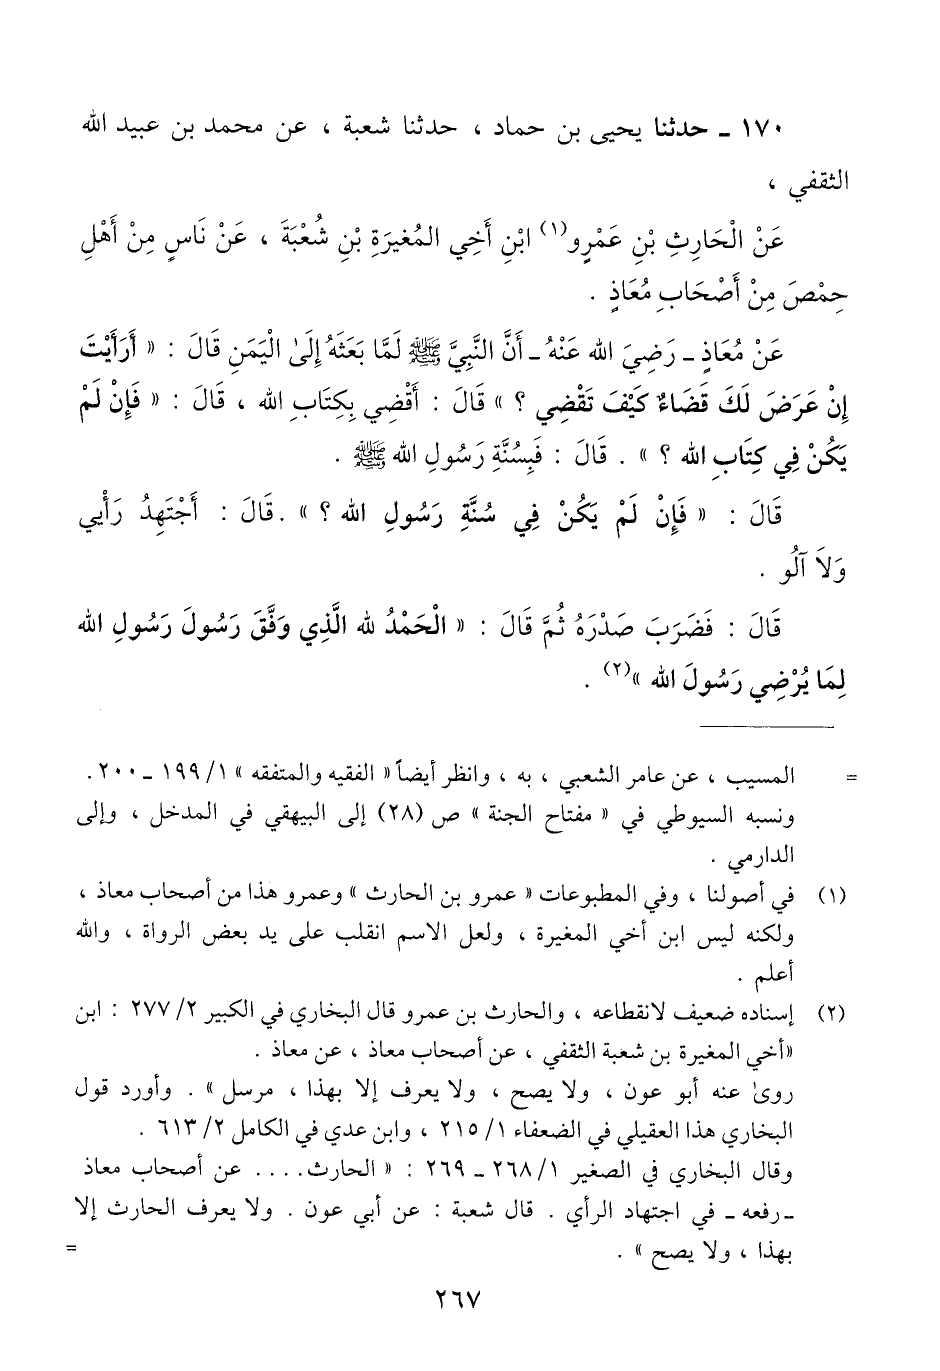 ١٧٠ ـ حدثنا يحيى بن حماد ، حدثنا شعبة ، عن محمد بن عبيد الله
الثقفي ،
عَنْ الْحَارِثِ بْنِ عَمْرٍو(١) ابْنِ أَخِي المُغيرَةِ بْنِ شُعْبَةَ ، عَنْ نَاسٍ مِنْ أَهْلِ
حِمْصَ مِنْ أَصْحَابِ مُعَاذٍ .
عَنْ مُعَاذٍ ـ رَضِيَ الله عَنْهُ ـ أَنَّ النَّبِيَّ ﷺ لَمَّا بَعَثَهُ إِلَىٰ الْيَمَنِ قَالَ : « أَرَأَيْتَ
إِنْ عَرَضَ لَكَ قَضَاءٌ كَيْفَ تَقْضِي ؟ » قَالَ : أَقْضِي بِكِتَابِ الله ، قَالَ : « فَإِنْ لَمْ
يَكُنْ فِي كِتَابِ الله ؟ » . قَالَ : فَبِسُنَّةِ رَسُولِ الله ﷺ .
قَالَ : « فَإِنْ لَمْ يَكُنْ فِي سُنَّةِ رَسُولِ الله ؟ » .قَالَ : أَجْتَهِدُ رَأْيِي
وَلاَ آلُو .
قَالَ : فَضَرَبَ صَدْرَهُ ثُمَّ قَالَ : « الْحَمْدُ لله الَّذِي وَفَّقَ رَسُولَ رَسُولِ الله
لِمَا يُرْضِي رَسُولَ الله »(٢) .
= المسيب ، عن عامر الشعبي ، به ، وانظر أيضاً « الفقيه والمتفقه » ١/ ١٩٩ ـ ٢٠٠ .
ونسبه السيوطي في « مفتاح الجنة » ص (٢٨) إلى البيهقي في المدخل ، وإلى
الدارمي .
(١) في أصولنا ، وفي المطبوعات « عمرو بن الحارث » وعمرو هذا من أصحاب معاذ ،
ولكنه ليس ابن أخي المغيرة ، ولعل الاسم انقلب على يد بعض الرواة ، والله
أعلم .
(٢) إسناده ضعيف لانقطاعه ، والحارث بن عمرو قال البخاري في الكبير ٢/ ٢٧٧ : ابن
«أخي المغيرة بن شعبة الثقفي ، عن أصحاب معاذ ، عن معاذ .
روىٰ عنه أبو عون ، ولا يصح ، ولا يعرف إلا بهذا ، مرسل » . وأورد قول
البخاري هذا العقيلي في الضعفاء ١/ ٢١٥ ، وابن عدي في الكامل ٢/ ٦١٣ .
وقال البخاري في الصغير ١/ ٢٦٨ ـ ٢٦٩ : « الحارث.... عن أصحاب معاذ
ـ رفعه ـ في اجتهاد الرأي . قال شعبة : عن أبي عون . ولا يعرف الحارث إلا
بهذا ، ولا يصح » . =
٢٦٧